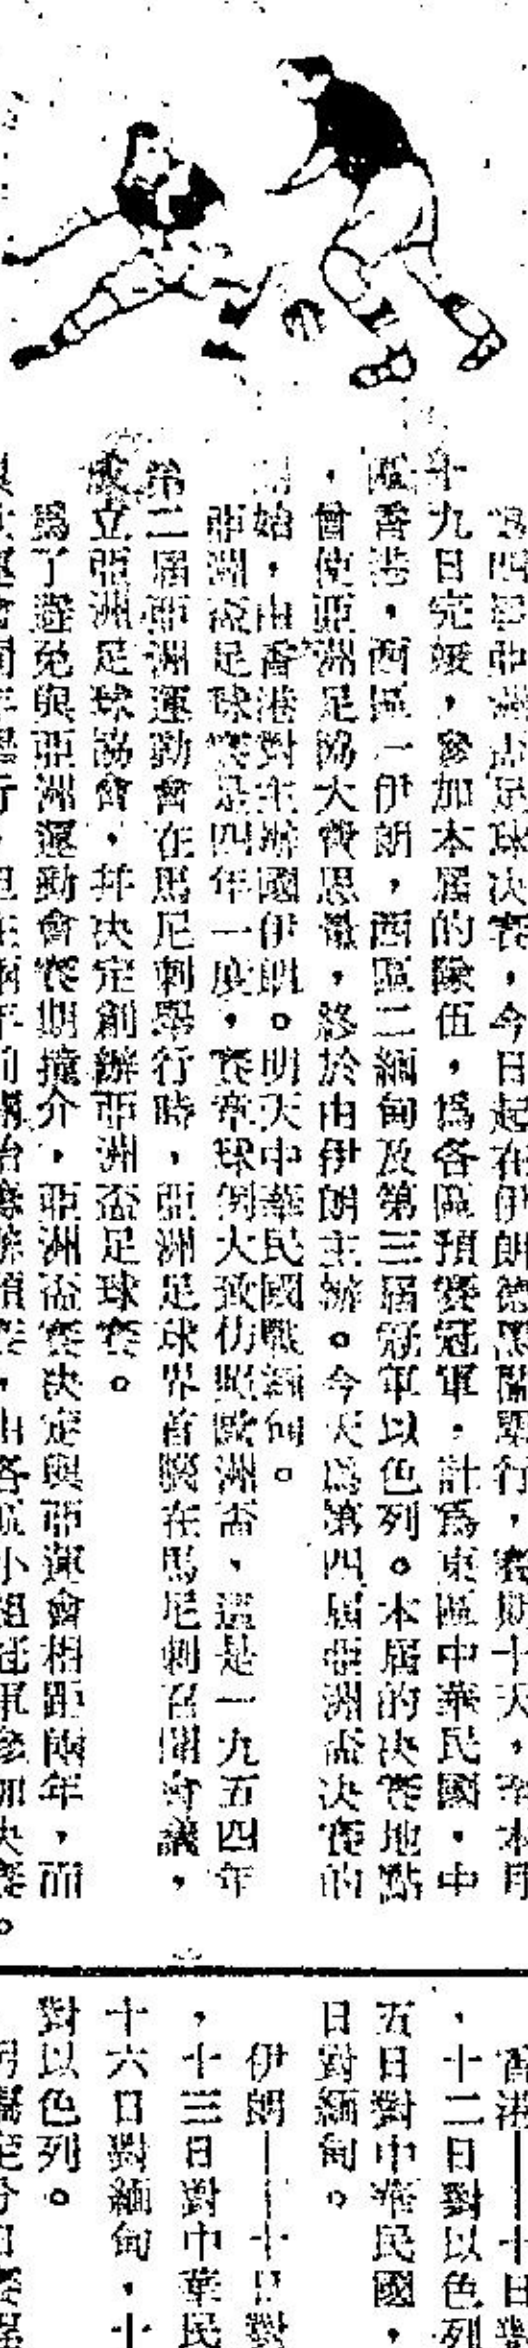 第四屆亞洲盃足球決賽，今日起在伊朗德黑蘭舉行，賽期十天，至本月
十九日完竣，參加本屆的隊伍，爲各區預賽冠軍，計爲東區中華民國，中
區香港，西區一伊朗，西區二緬甸及第三屆冠軍以色列。本屆的決賽地點
，曾使亞洲足協大費思量，終於由伊朗主辦。今天爲第四屆亞洲盃決賽的
開始，由香港對主辦國伊朗。明天中華民國戰緬甸。
亞洲盃足球賽是四年一度，賽章球例大致仿照歐洲盃，這是一九五四年
第二屆亞洲運動會在馬尼剌舉行時，亞洲足球界首腦在馬尼剌召開會議，
成立亞洲足球協會，幷決定創辦亞洲盃足球賽。
爲了避免與亞洲運動會賽期撞介，亞洲盃賽決定與亞運會相距兩年，而
由各區小組冠軍參加決賽。
香港——十日對
，十二日對以色列
五日對中華民國，
日對緬甸。
伊朗——十日對
，十三日對中華民
十六日對緬甸，十
對以色列。